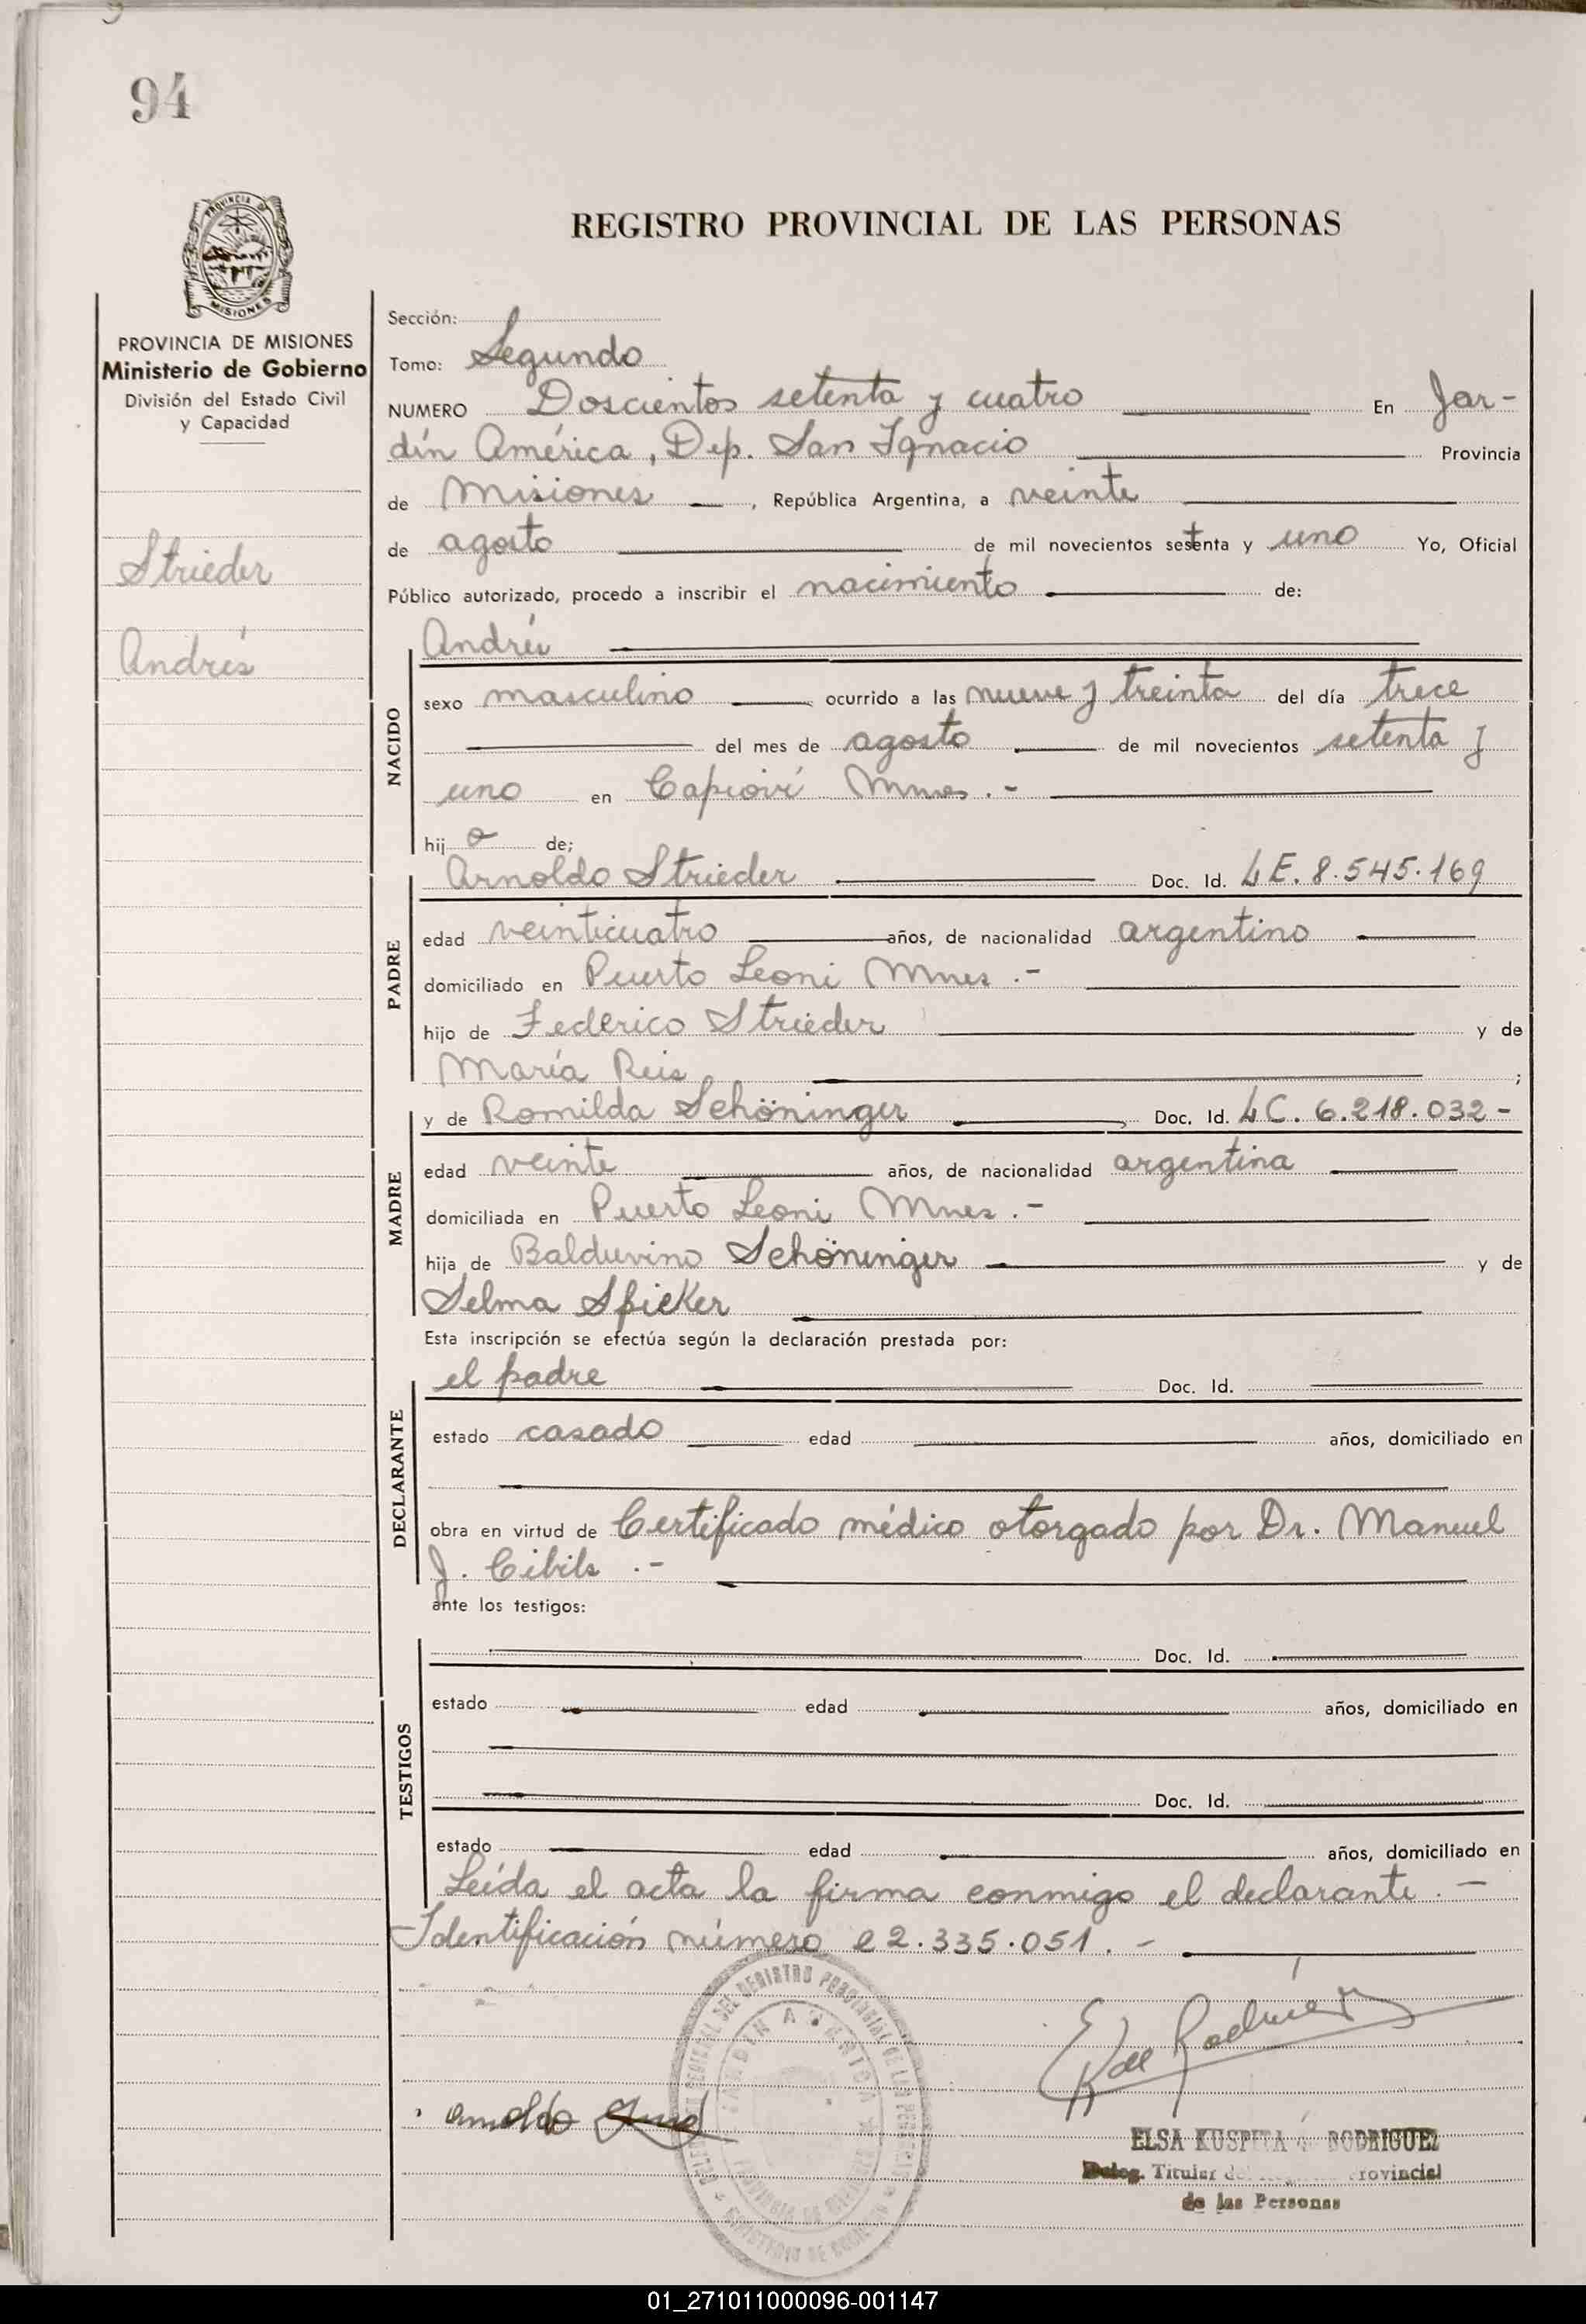 94
PROVINCIA DE
MISIONES
REGISTRO PROVINCIAL DE LAS PERSONAS
PROVINCIA DE MISIONES
Ministerio de Gobierno
División del Estado Civil
y Capacidad
Strieder
Andrés
Sección:
Tomo: Segundo
NUMERO Doscientos setenta y cuatro En Jar-
dín América, Dep. San Ignacio Provincia
de Misiones, República Argentina, a veinte
de agosto de mil novecientos setenta y uno Yo, Oficial
Público autorizado, procedo a inscribir el nacimiento de:
NACIDO
Andrés
sexo masculino ocurrido a las nueve y treinta del día trece
del mes de agosto de mil novecientos setenta y
uno en Capioví Mnes.-
hijo de;
PADRE
Arnoldo Strieder Doc. Id. LE. 8.545.169
edad veinticuatro años, de nacionalidad argentino
domiciliado en Puerto Leoni Mnes.-
hijo de Federico Strieder y de
María Reis ;
MADRE
y de Romilda Schöninger Doc. Id. LC. 6.218.032-
edad veinte años, de nacionalidad argentina
domiciliada en Puerto Leoni Mnes.-
hija de Balduvino Schöninger y de
Selma Spicker
Esta inscripción se efectúa según la declaración prestada por:
DECLARANTE
el padre Doc. Id.
estado casado edad años, domiciliado en
obra en virtud de Certificado médico otorgado por Dr. Manuel
J. Cibils.-
ante los testigos:
TESTIGOS
Doc. Id.
estado edad años, domiciliado en
Doc. Id.
estado edad años, domiciliado en
Leída el acta la firma conmigo el declarante.-
Identificación número 22.335.051.-
JARDIN AMERICA
Arnoldo
ELSA KUSPITA de RODRIGUEZ
Deleg. Titular del Provincial
de las Personas
01_271011000096-001147